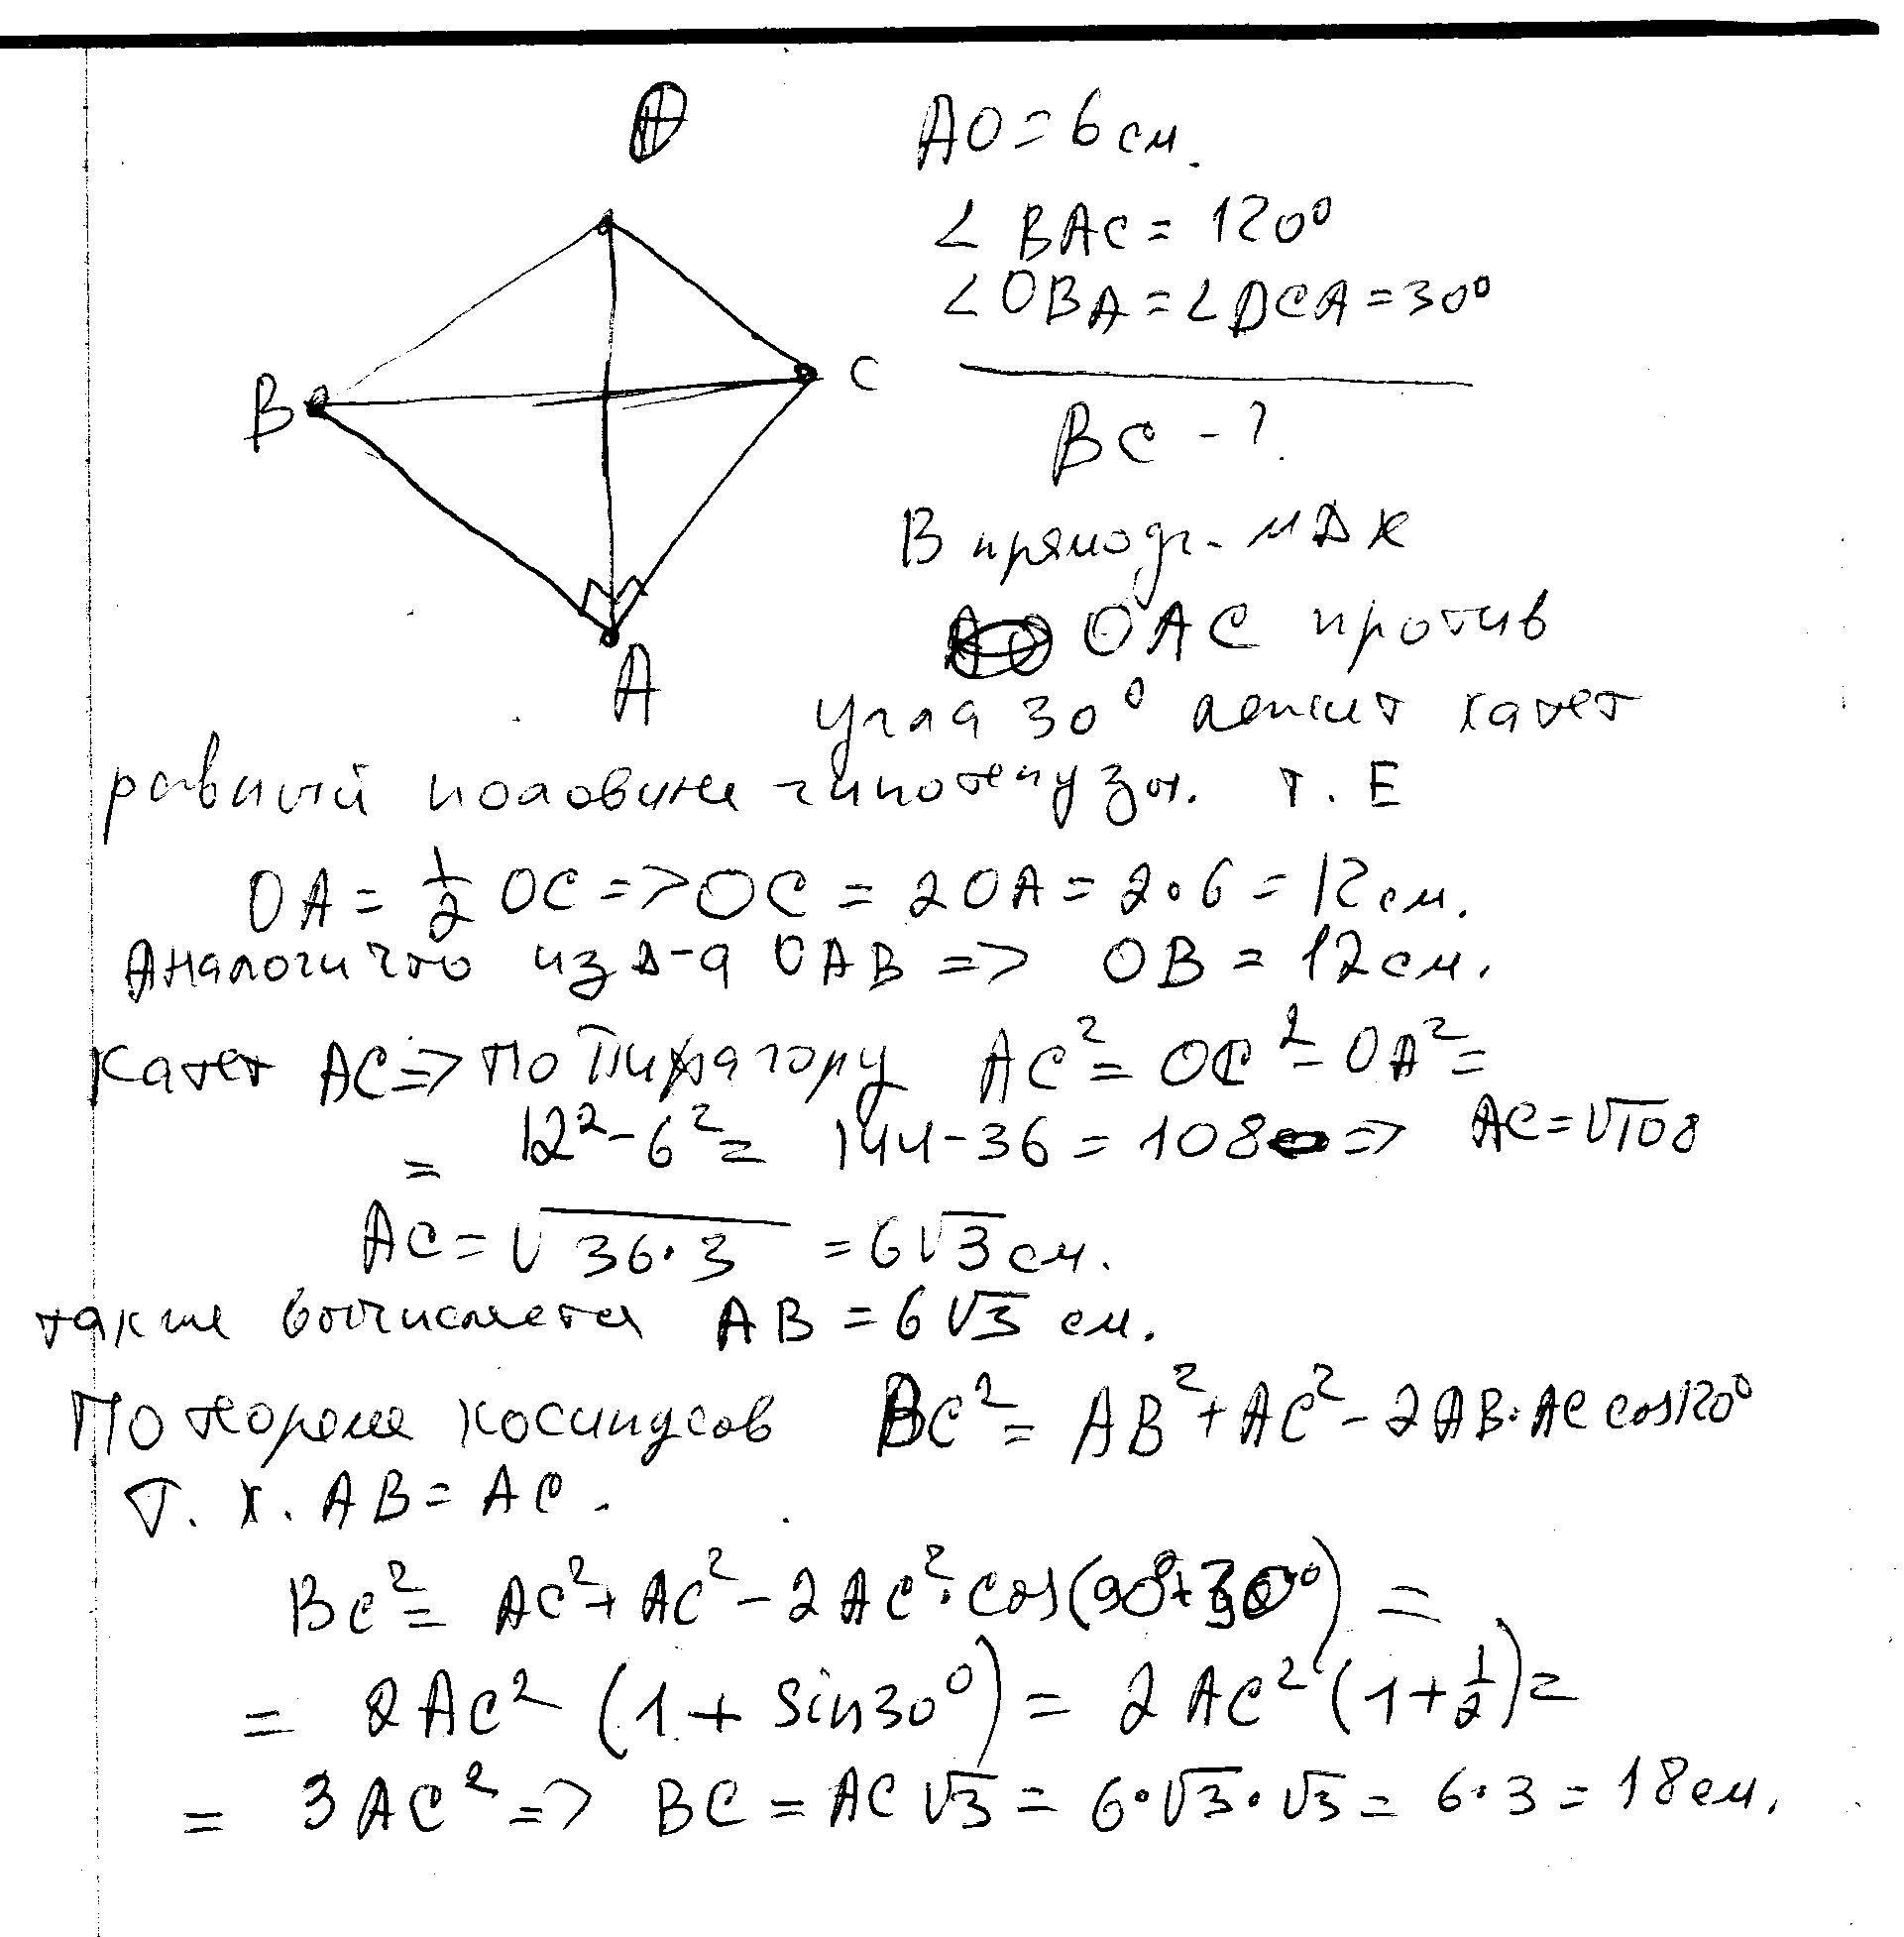 AO = 6 см.
∠ BAC = 120°
∠ OBA = ∠ DCA = 30°
B
C
BC - ?
A
В прямоуг-м Δ-к
OAC против
угла 30° лежит катет
равный половине гипотенузы. т. Е
OA = 1/2 OC => OC = 2OA = 2·6 = 12 см.
Аналогично из Δ-а OAB => OB = 12 см.
Катет AC => По Пифагору AC² = OC² - OA² =
= 12² - 6² = 144 - 36 = 108 => AC = √108
AC = √36·3 = 6√3 см.
также вычисляется AB = 6√3 см.
По теореме косинусов BC² = AB² + AC² - 2AB·AC cos120°
Т. к. AB = AC.
BC² = AC² + AC² - 2AC²·cos(90°+30°) =
= 2AC² (1 + sin30°) = 2AC² (1 + 1/2) =
= 3AC² => BC = AC√3 = 6·√3·√3 = 6·3 = 18 см.